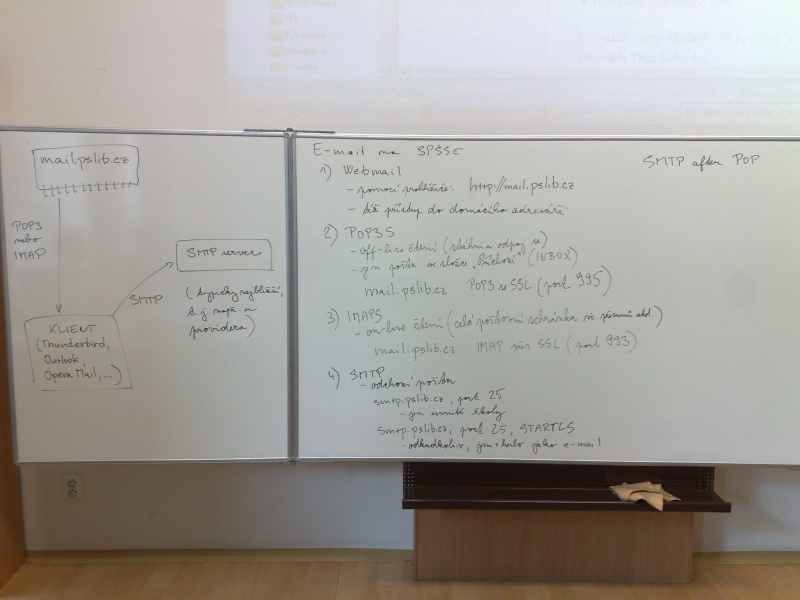 mail.pslib.cz
POP3
nebo
IMAP
SMTP server
SMTP
(typicky nejbližší,
t.j. např. u
providera)
KLIENT
(Thunderbird,
Outlook,
Opera Mail,...)
E-mail na SPŠSE
SMTP after POP
1) Webmail
- pomocí prohlížeče: http://mail.pslib.cz
- též přístup do domácího adresáře
2) POP3S
- off-line čtení (stáhni a odpoj se)
- jen pošta ve složce "Příchozí" (INBOX)
mail.pslib.cz POP3 se SSL (port 995)
3) IMAPS
- on-line čtení (celá poštovní schránka atd.)
mail.pslib.cz IMAP přes SSL (port 993)
4) SMTP
- odchozí pošta
smtp.pslib.cz, port 25
- jen uvnitř školy
smtp.pslib.cz, port 25, STARTLS
- odkudkoliv, jm+heslo jako e-mail